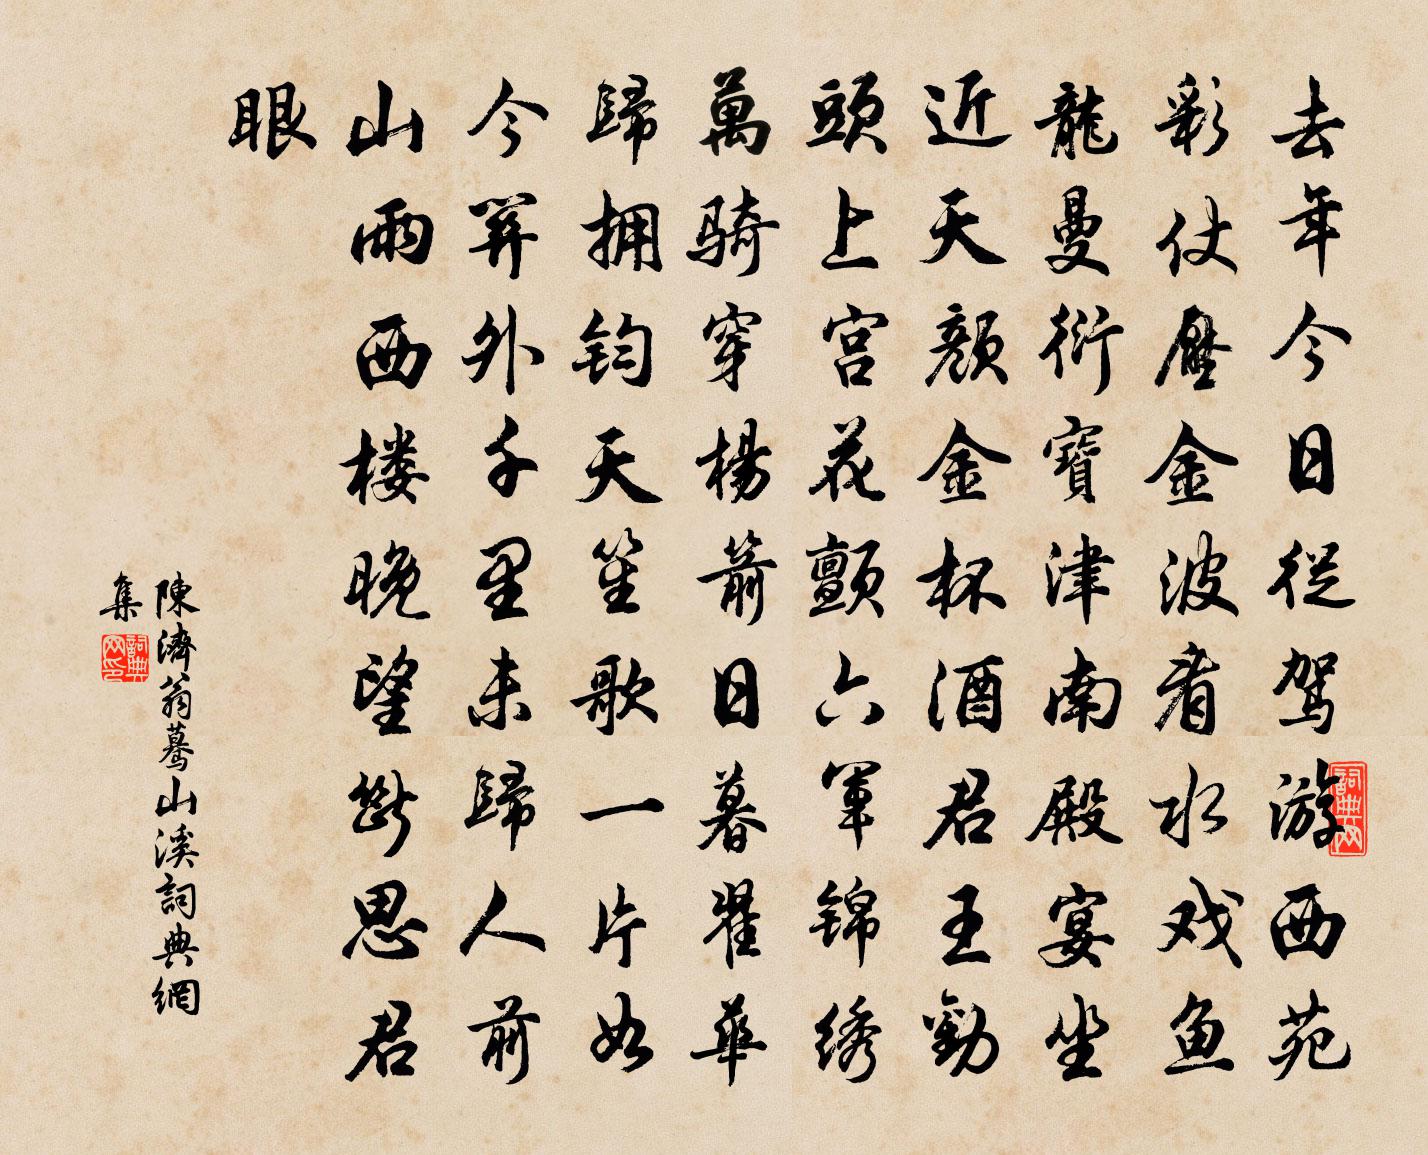 去年今日從駕游西苑
彩仗壓金波看水戏鱼
龍曼衍寶津南殿宴坐
近天顏金杯酒君王勸
頭上宫花顫六軍锦绣
萬骑穿楊箭日暮翠華
歸拥钧天笙歌一片如
今關外千里未歸人前
山雨西楼晚望斷思君
眼
陳濟翁蓦山溪詞典網
集
詞典网
詞典网印